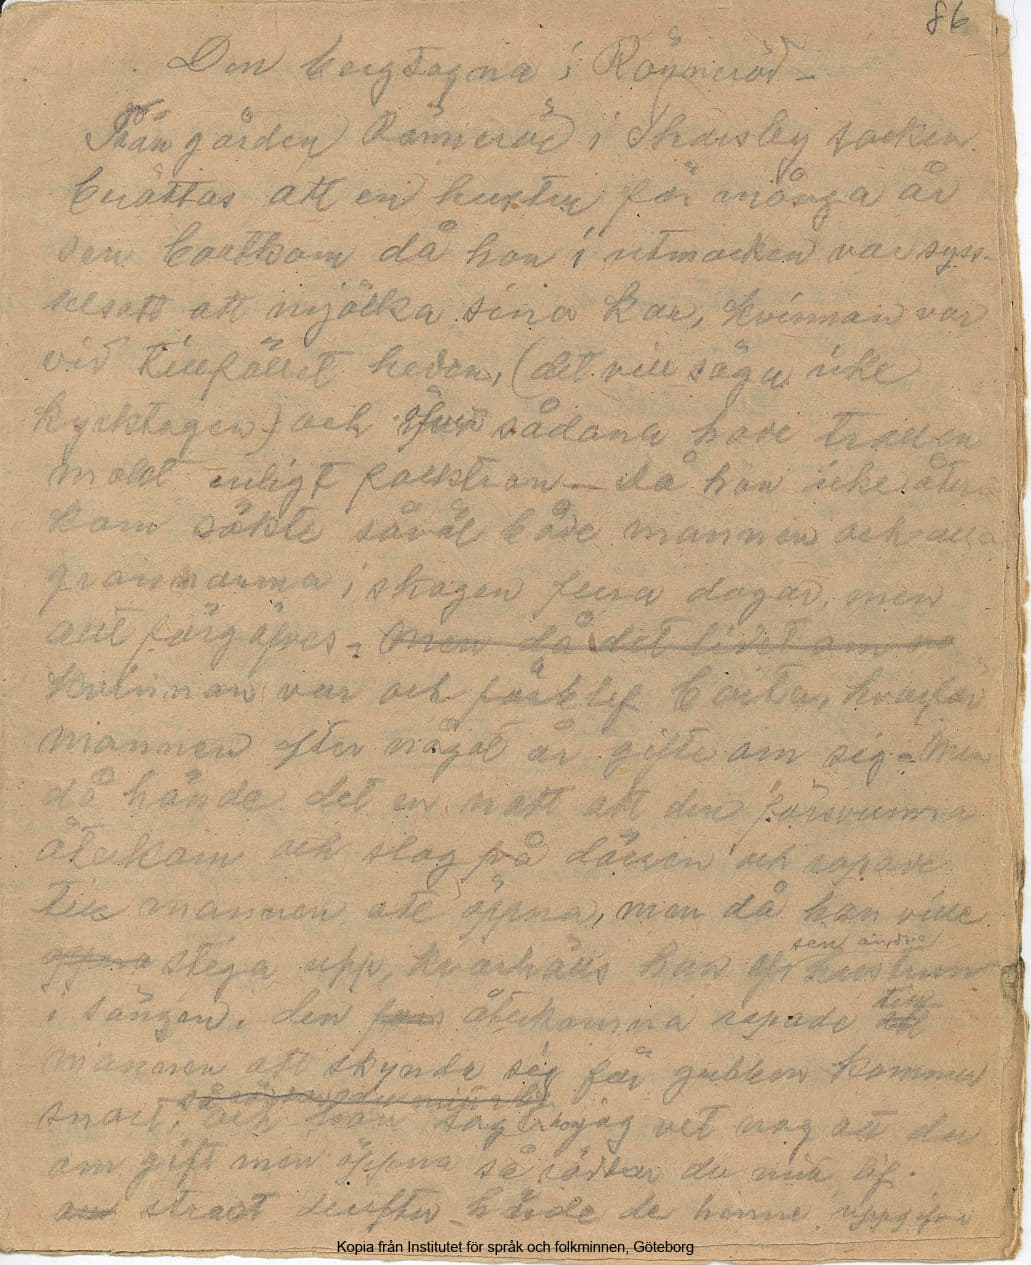 86
Den bergtagna i Rönneröd -
Från gården Rönneröd i Thorsby socken
berättas att en hustru för många år
sen bortkom då hon i utmarken var syss-
selsatt att mjölka sina kor, kvinnan var
vid tillfället heden, (det vill säga icke
kyrktagen) och öfver sådana hava trollen
makt enligt folktron — då hon icke åter-
kom sökte såväl både mannen och alla
grannarna i skogen flera dagar, men
allt förgäfves - Men då det led om
kvinnan var och förblef borta, hvarför
mannen efter något år gifte om sig - Men
då hände det en natt att den försvunna
återkom och slog på dörren och ropade
till mannen att öppna, men då han ville
sen andra
öppna stega upp, kvarhölls han af hustrun
i sängen. den förs återkomna ropade till
mannen att skynda sig för gubben kommer
snart, och hon sag hon jag vet nog att du
om gift men öppna så räddar du mitt lif.
strast derefter hörde de henne uppgifva
Kopia från Institutet för språk och folkminnen, Göteborg